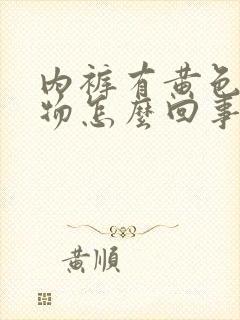 内裤有黄色
物怎麼回事
黃順